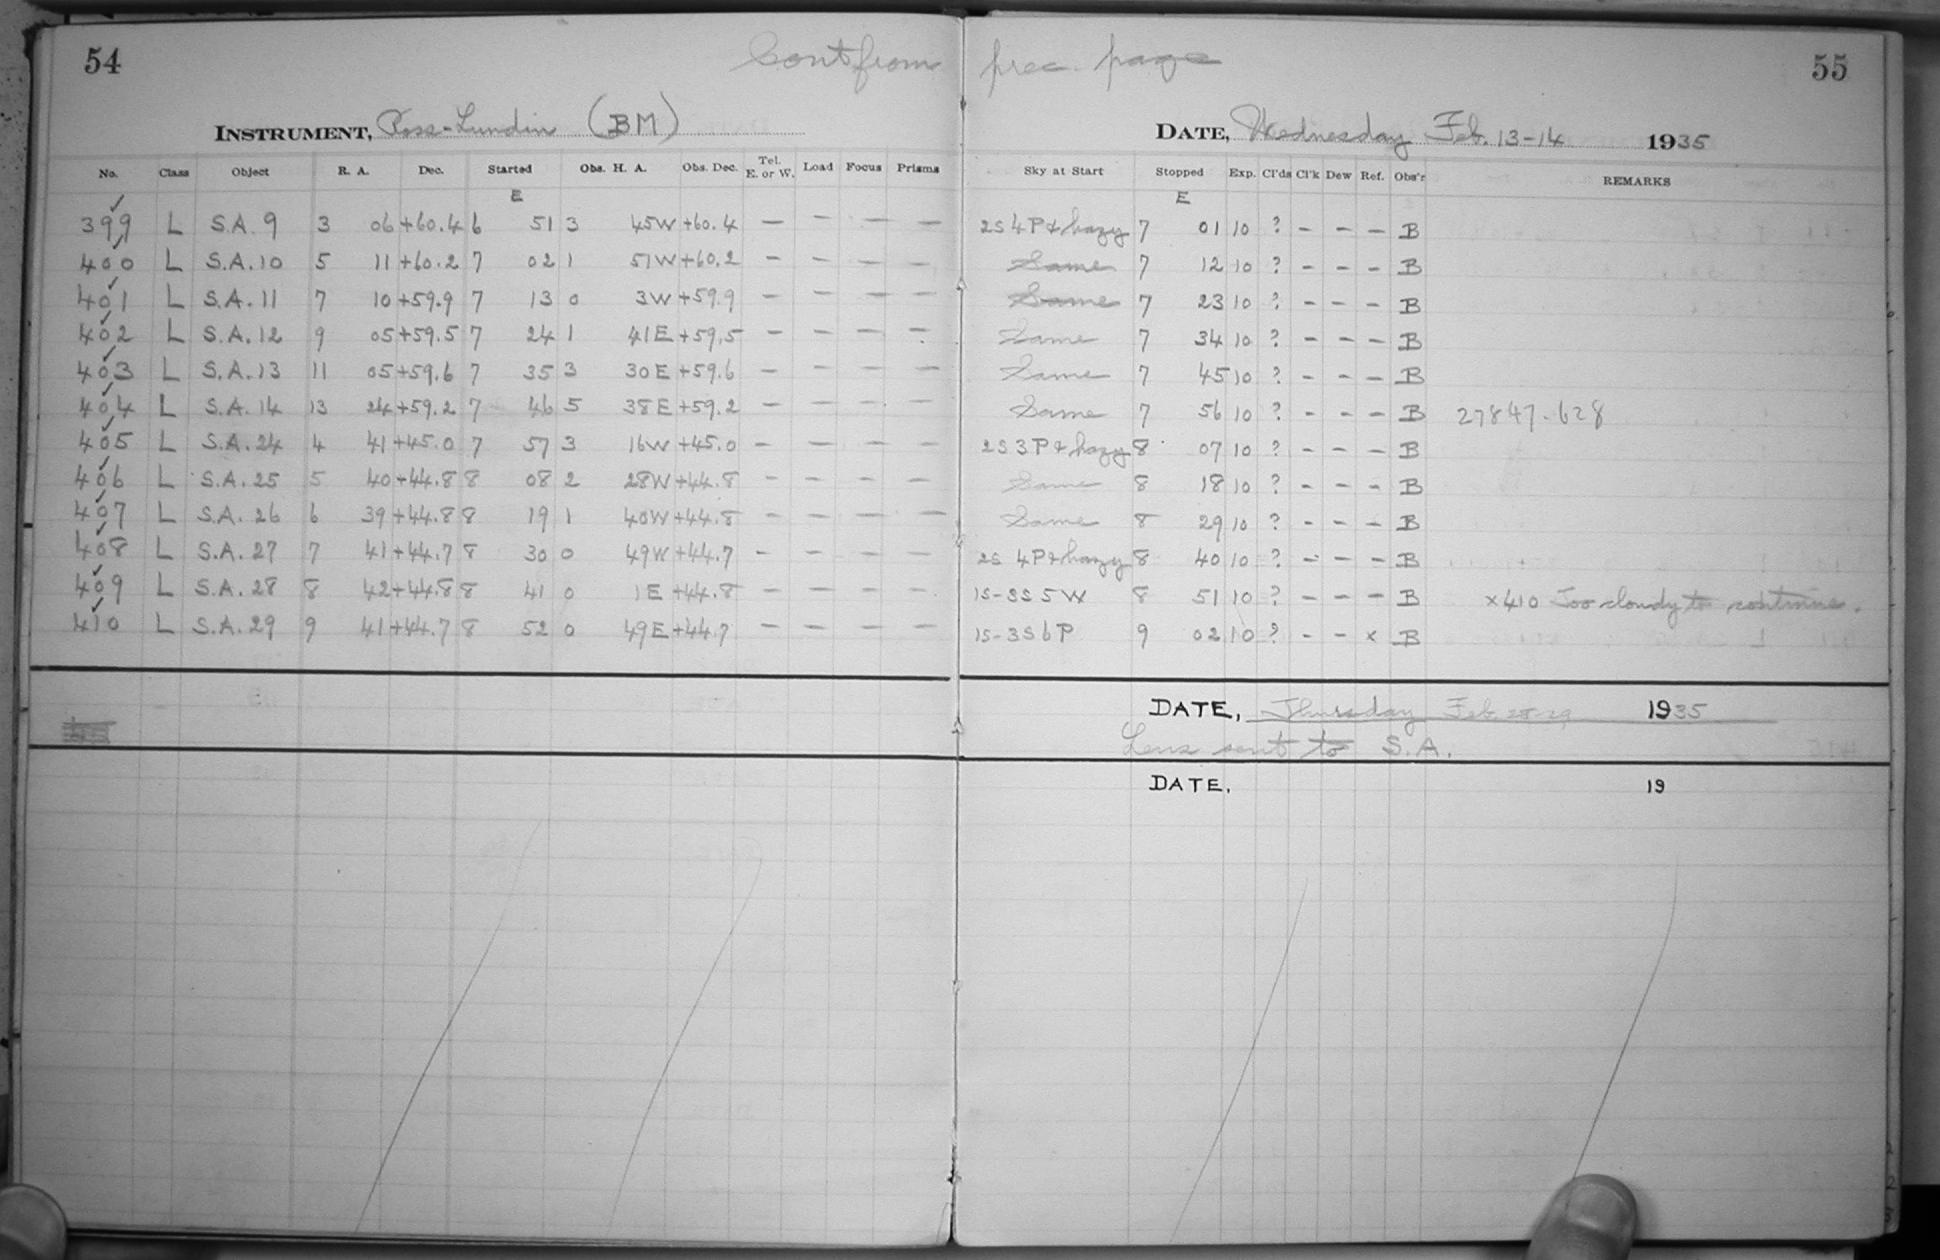 54 Cont from prec. page 55
INSTRUMENT, Ross-Lundin (BM) DATE, Wednesday Feb. 13-14 1935
No. Class Object R. A. Dec. Started Obs. H. A. Obs. Dec. Tel. E. or W. Load Focus Prisms Sky at Start Stopped Exp. Cl'ds Cl'k Dew Ref. Obs'r REMARKS
E E
399 ✓ L S.A. 9 3 06 +60.4 6 51 3 45W +60.4 — — — — 2S 4P & hazy 7 01 10 ? – – – B
400 ✓ L S.A. 10 5 11 +60.2 7 02 1 51W +60.2 — — — — Same 7 12 10 ? – – – B
401 ✓ L S.A. 11 7 10 +59.9 7 13 0 3W +59.9 — — — — Same 7 23 10 ? – – – B
402 ✓ L S.A. 12 9 05 +59.5 7 24 1 41E +59.5 — — — — Same 7 34 10 ? – – – B
403 ✓ L S.A. 13 11 05 +59.6 7 35 3 30E +59.6 — — — — Same 7 45 10 ? – – – B
404 ✓ L S.A. 14 13 24 +59.2 7 46 5 38E +59.2 — — — — Same 7 56 10 ? – – – B 27847.628
405 ✓ L S.A. 24 4 41 +45.0 7 57 3 16W +45.0 — — — — 2S 3P & hazy 8 07 10 ? – – – B
406 ✓ L S.A. 25 5 40 +44.8 8 08 2 28W +44.8 — — — — Same 8 18 10 ? – – – B
407 ✓ L S.A. 26 6 39 +44.8 8 19 1 40W +44.8 — — — — Same 8 29 10 ? – – – B
408 ✓ L S.A. 27 7 41 +44.7 8 30 0 49W +44.7 — — — — 2S 4P & hazy 8 40 10 ? – – – B
409 ✓ L S.A. 28 8 42 +44.8 8 41 0 1E +44.8 — — — — 1S-3S 5W 8 51 10 ? – – – B ×410 Too cloudy to continue.
410 ✓ L S.A. 29 9 41 +44.7 8 52 0 49E +44.7 — — — — 1S-3S 6P 9 02 10 ? – – × B
DATE, Thursday Feb. 28-29 1935
Lens sent to S.A.
DATE, 19